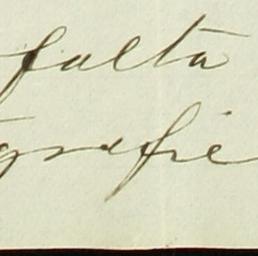 falta
grafie